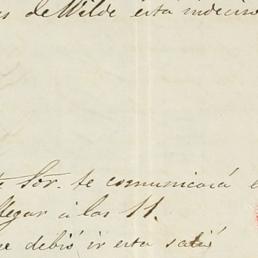 de Wilde está indeciso
Sor. te comunicará
llegar á las 11.
debió ir esta